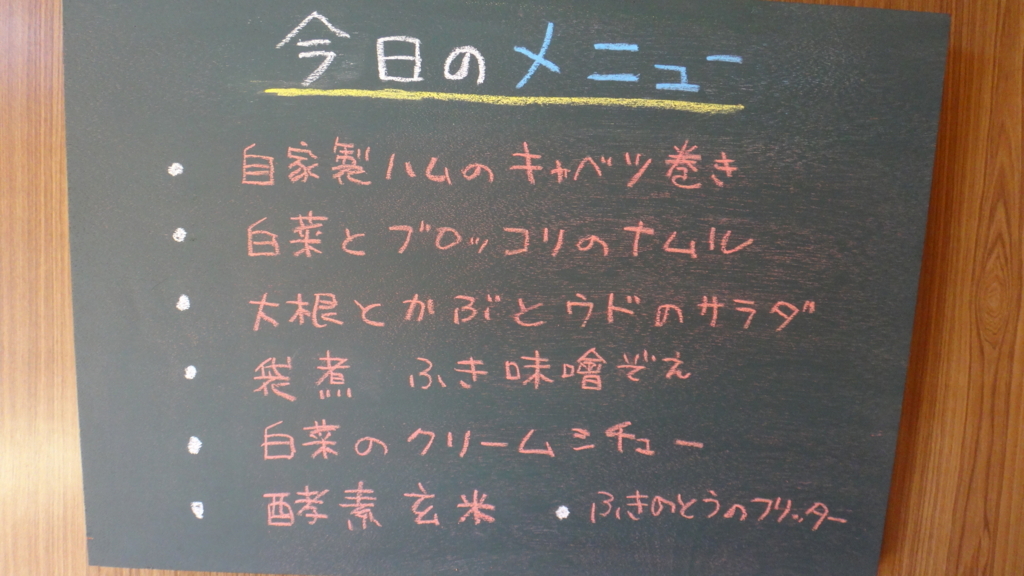 今日のメニュー
・自家製ハムのキャベツ巻き
・白菜とブロッコリのナムル
・大根とかぶとウドのサラダ
・袋煮 ふき味噌ぞえ
・白菜のクリームシチュー
・酵素玄米 ・ふきのとうのフリッター